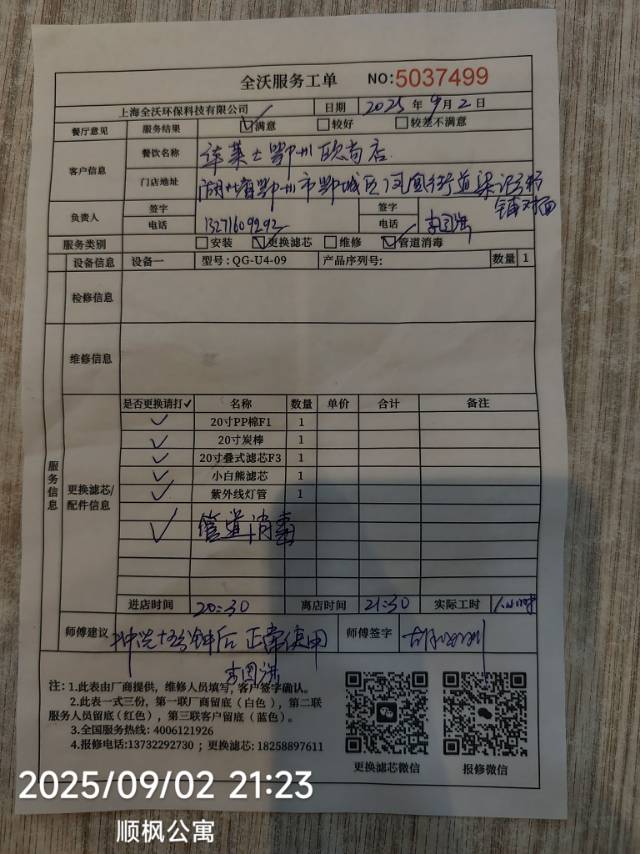 全沃服务工单 NO:5037499
上海全沃环保科技有限公司 日期 2025 年 9 月 2 日
餐厅意见 服务结果 ☑满意 □较好 □较差不满意
客户信息 餐饮名称 华莱士鄂州欧尚店
门店地址 湖北省鄂州市鄂城区凤凰街道
铺对面
负责人 签字 签字
电话 13271609292 电话
服务类别 □安装 ☑更换滤芯 □维修 ☑管道消毒
设备信息 设备一 型号:QG-U4-09 产品序列号: 数量 1
检修信息
维修信息
服务信息
更换滤芯/配件信息
是否更换请打✓ 名称 数量 单价 合计 备注
✓ 20寸PP棉F1 1
✓ 20寸炭棒 1
✓ 20寸叠式滤芯F3 1
✓ 小白熊滤芯 1
✓ 紫外线灯管 1
✓ 管道消毒
进店时间 20:30 离店时间 21:30 实际工时 1小时
师傅建议 冲洗十五分钟后 正常使用 师傅签字
注:1.此表由厂商提供,维修人员填写,客户签字确认。
2.此表一式三份,第一联厂商留底(白色),第二联
服务人员留底(红色),第三联客户留底(蓝色)。
3.全国服务热线: 4006121926
4.报修电话:13732292730 ; 更换滤芯: 18258897611
更换滤芯微信 报修微信
2025/09/02 21:23
顺枫公寓